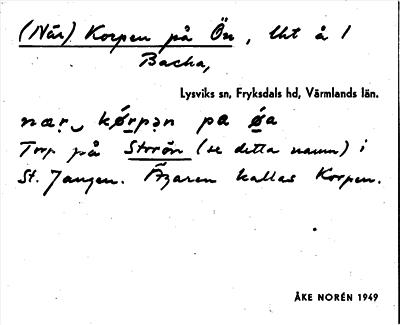 (När) Korpen på Ön, Uht å 1
Backa,
Lysviks sn, Fryksdals hd, Värmlands län.
næṛ‿ kǿrpən pa ǿa
Torp på Storön (se detta namn) i
St. Jangen. Ägaren kallas Korpen.
ÅKE NORÉN 1949